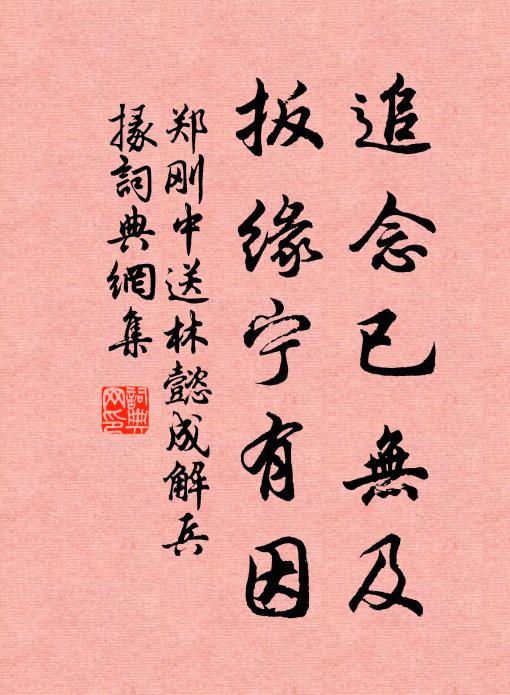 追念已無及
扳缘宁有因
郑刚中送林懿成解兵
掾詞典網集
詞典
网印